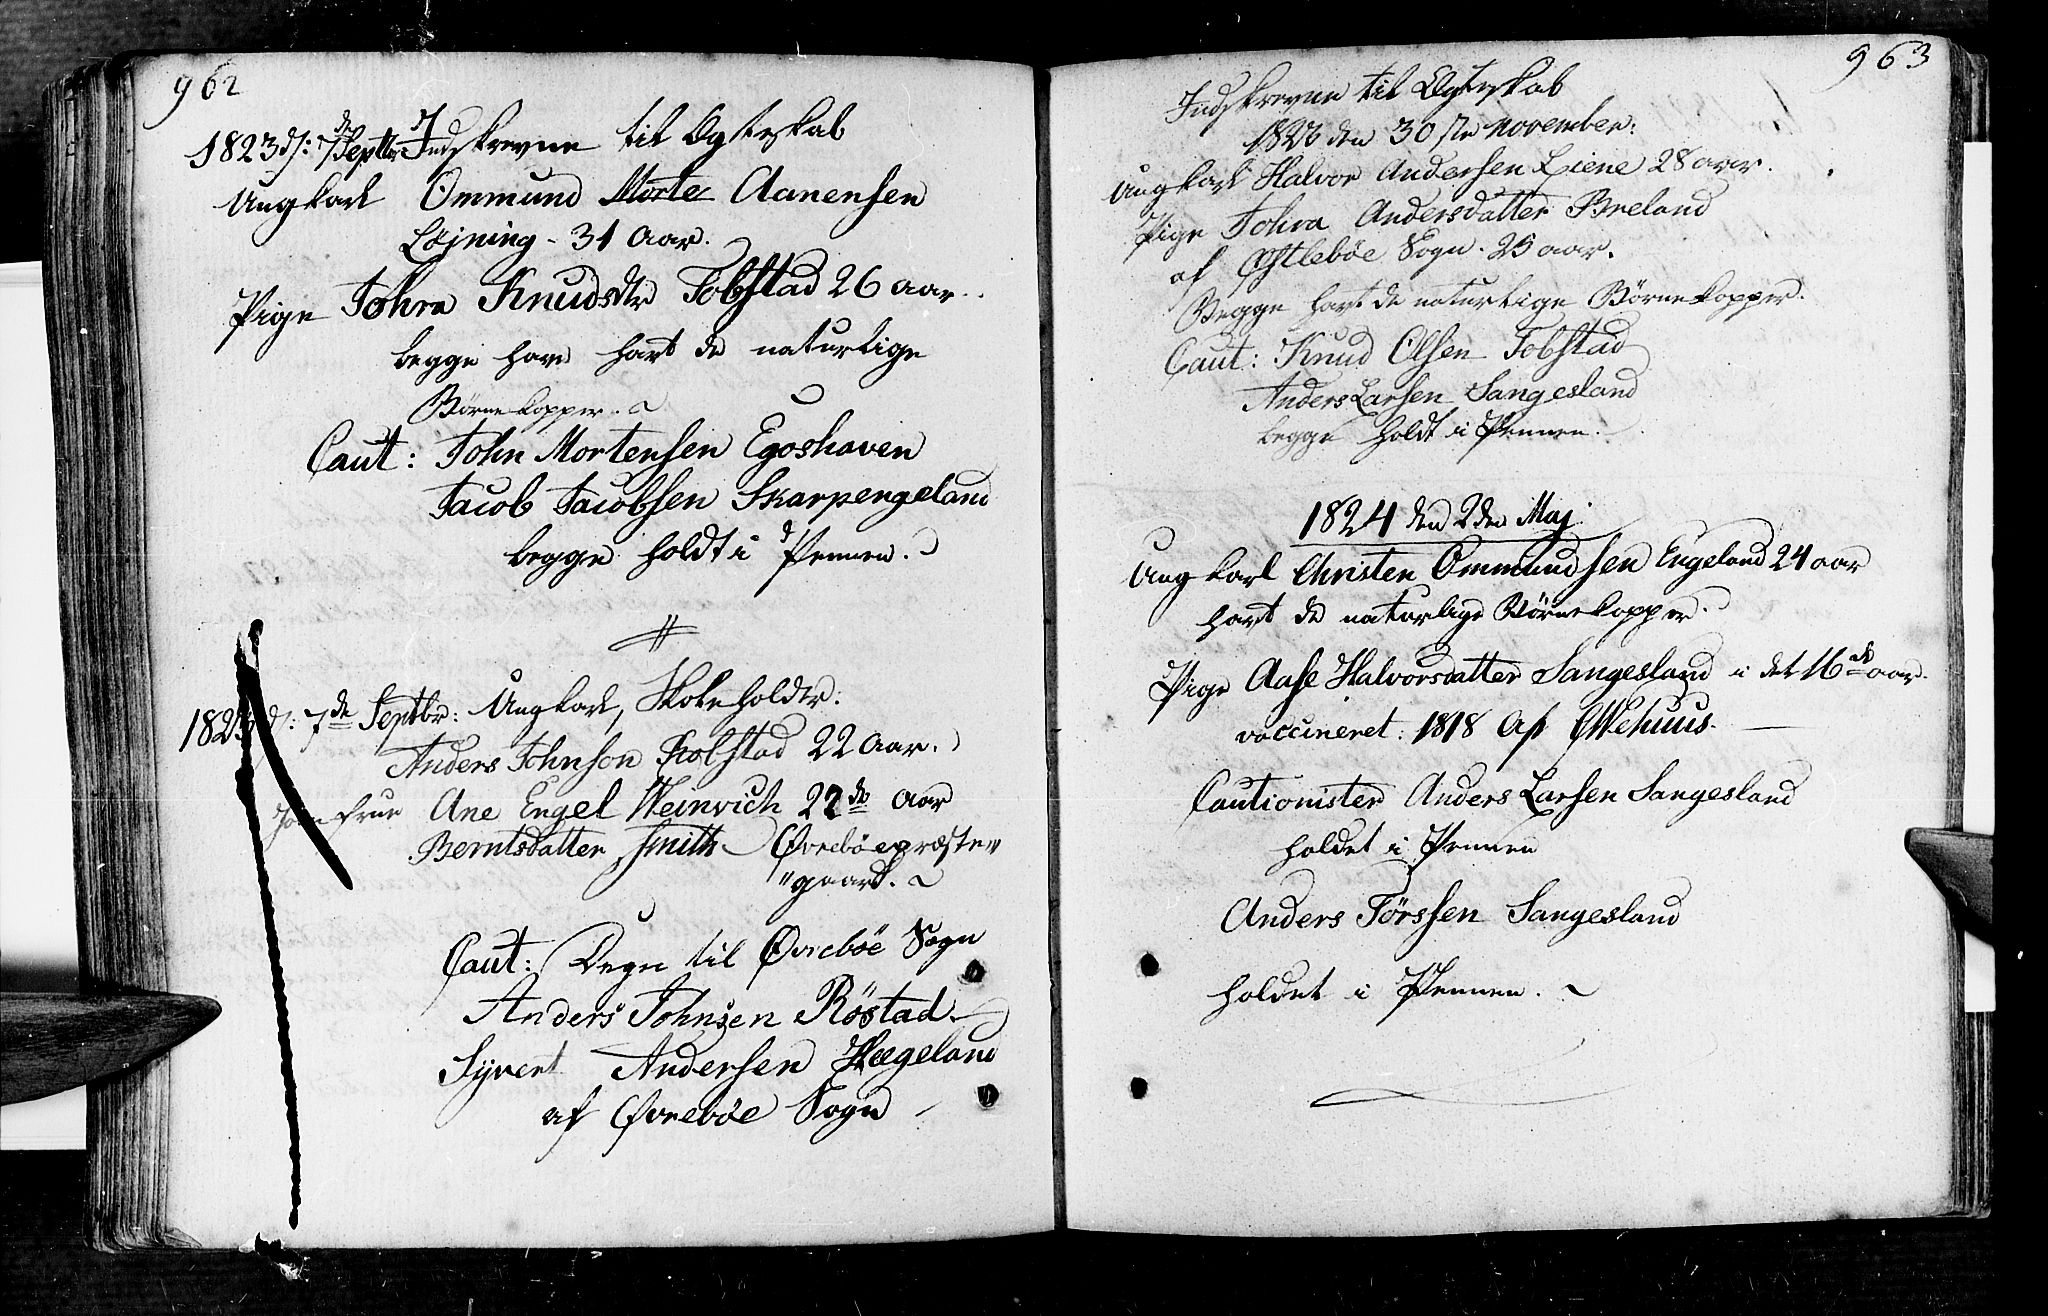 962
1823 d: 7de Septbr Indskrevne til Ægteskab
Ungkarl Ommund Morte Aanensen
Løjning - 31 Aar.
Pige Tohra Knudsdtr Tobstad 26 aar.
begge have havt de naturlige
Børnekopper.
Caut: John Mortensen Egoshaven
Jacob Jacobsen Skarpengeland
begge holdt i Pennen.
1823 d: 7de Septbr: Ungkarl, Skoleholdr:
Anders Johnson 22 Aar.
Jomfrue Ane Engel Weinvich 22de Aar
Berntsdatter Smith Øvrebøe præste„
„gaard.
Caut: Degn til Øvrebøe Sogn
Anders Johnsen Röstad
Syvert Andersen Hægeland
af Øvrebøe Sogn
963
Indskrevne til Ægteskab
1823 den 30ste November:
Ungkarl Halvor Andersen Liene 28 aar.
Pige Tohra Andersdatter Breland
af Øftlebøe Sogn. 25 aar.
Begge havt de naturlige Börnekopper.
Caut: Knud Olsen Tobstad
Anders Larsen Sangesland
begge holdt i Pennen.
1824 den 2den Maj:
Ungkarl Christen Ommundsen Engeland 24 aar
havt de naturlige Börnekopper.
Pige Aase Halvorsdatter Sangesland i det 16de aar.
vaccineret 1818 af Wehuus.
Cautionister Anders Larsen Sangesland
holdet i Pennen
Anders Törssen Sangesland
holdet i Pennen.